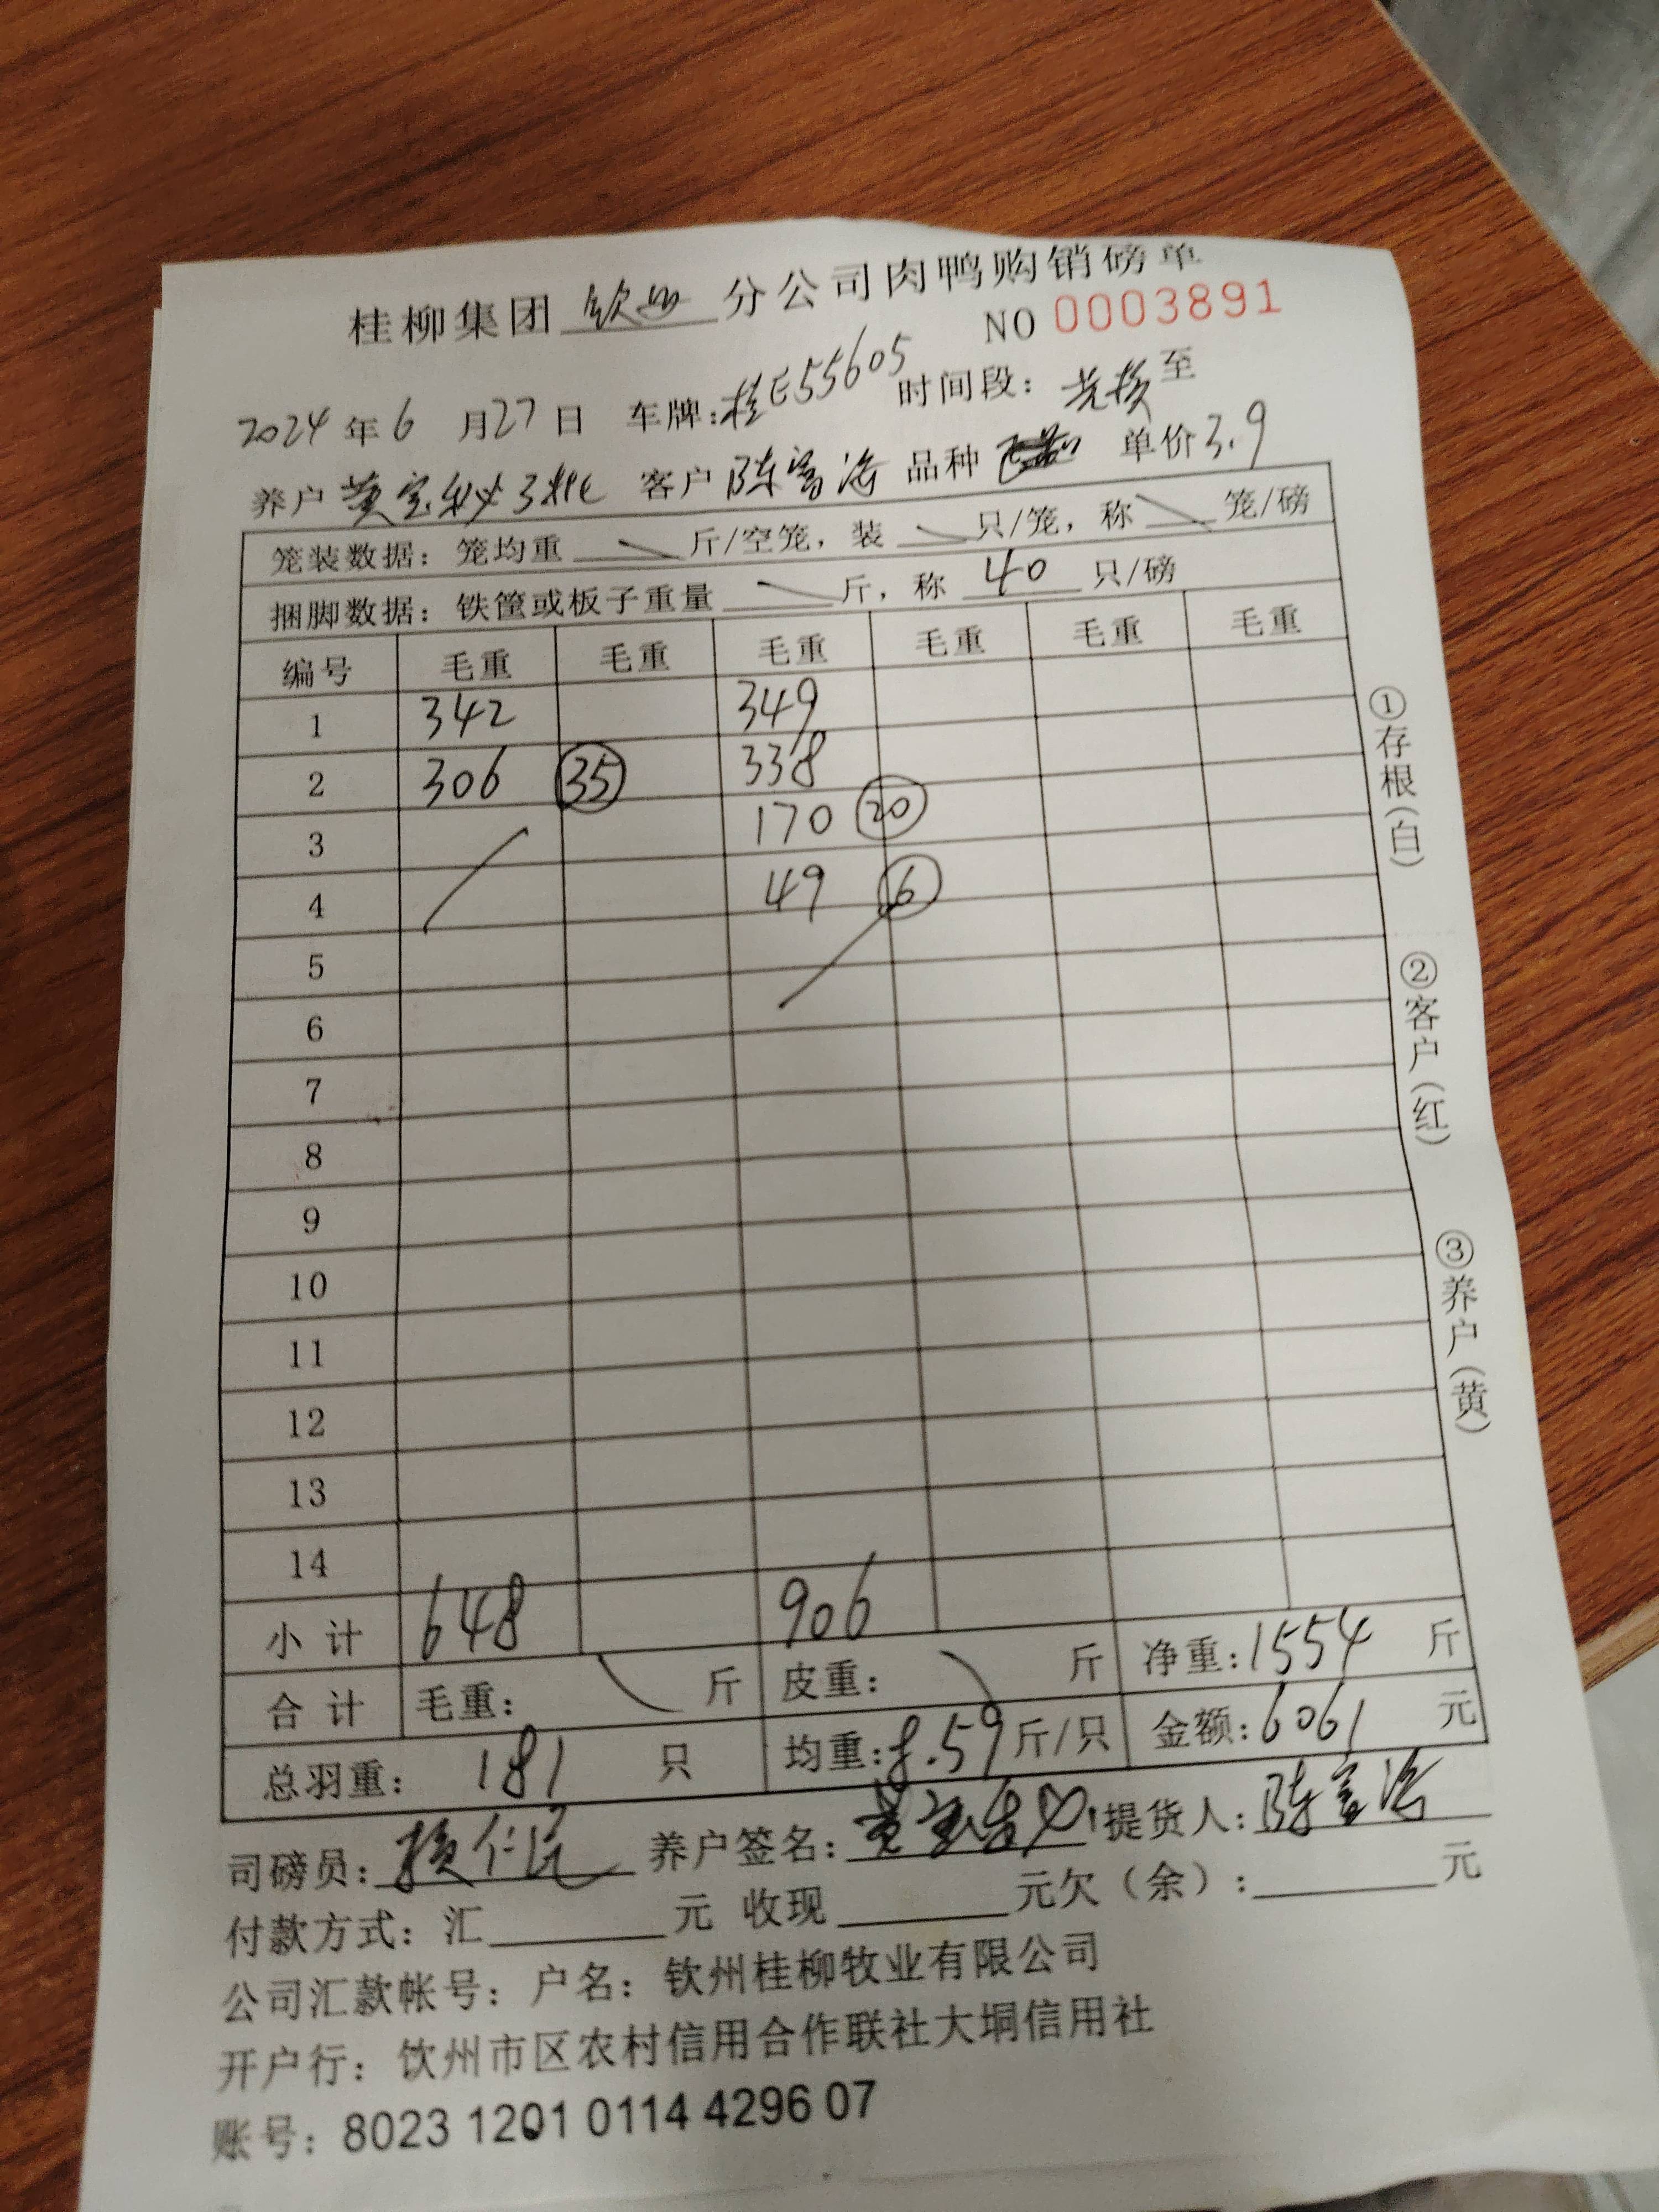 桂柳集团 钦州 分公司肉鸭购销磅单
NO 0003891
2024 年 6 月 27 日 车牌:桂E55605 时间段: 至
养户 黄宝 3批 客户 陈富海 品种 单价 3.9
笼装数据: 笼均重 斤/空笼, 装 只/笼, 称 笼/磅
捆脚数据: 铁筐或板子重量 斤, 称 40 只/磅
编号 毛重 毛重 毛重 毛重 毛重 毛重
1 342 349
2 306 35 338
3 170 20
4 49 6
5
6
7
8
9
10
11
12
13
14
小计 648 906
合计 毛重: 斤 皮重: 斤 净重: 1554 斤
总羽重: 181 只 均重: 8.59 斤/只 金额: 6061 元
司磅员: 养户签名: 提货人: 陈富海
付款方式: 汇 元 收现 元欠(余): 元
公司汇款帐号: 户名: 钦州桂柳牧业有限公司
开户行: 饮州市区农村信用合作联社大垌信用社
账号: 8023 1201 0114 4296 07
①存根(白)
②客户(红)
③养户(黄)